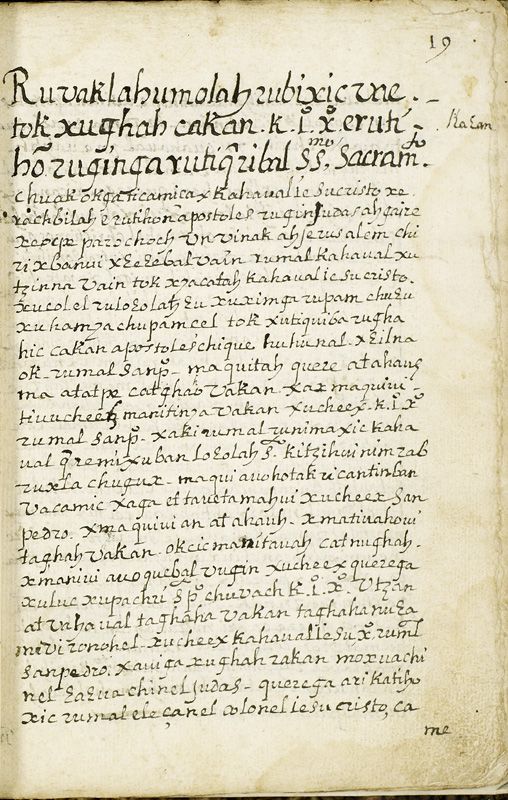 19
Ruvaklahumolah rubixic vae.
tok xughah cakan. k. i. x. eruti
Kazan
hõ ruginga xutiq̃ribal S.S.mo Sacramto.
chuak okga ticamicax kahaval iesu cristo xe
rachbilah e rutihon apostoles rugin judas ah
xepope parochoch Vn vinak ah jerusalem chi
rixbanui xezezebal vain rumal kahaval xu
tzinna vain tok xpacatah kahaval iesu cristo.
xucolel rulozolah zu xuximga rupam chuzu
xuhamya chupam cel tok xutiquiba rugha
hic cakan apostoles chique huhunal. xeilna
ok. rumal Sanpo. maquitah quere at ahaus
ma atatpe catghah vakan. xax maquivi
tivucheex manitinya vakan xucheex. k. i. x.
rumal Sanpo. xaki rumal runimaxic kaha
ual q̃re mixuban lozolah S. kitzihvi nimrab
ruxla chugux. maqui avohotak ri cantinban
vacamic xaga et tavetamahvi xucheex San
pedro. xmaquivi an at ahauh. xmativahovi
taghah vakan. okcic manitavah catnughah.
xmanivi auoquebal vugin xucheex querega
xuluc xupachri S po chuvach k. i. x. Vtzan
at vahaval taghaha vakan taghaha nuza
mivi ronohel. xucheex kahaval iesu x. ruml
Sanpedro. xaviga xughah rakan moxvachi
nel zazua chinel judas. querega ari katiho
xic rumal ele çanel colonel iesu cristo, ca
me